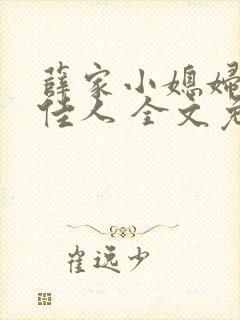 薛家小媳妇
佳人 全文免
崔逸少